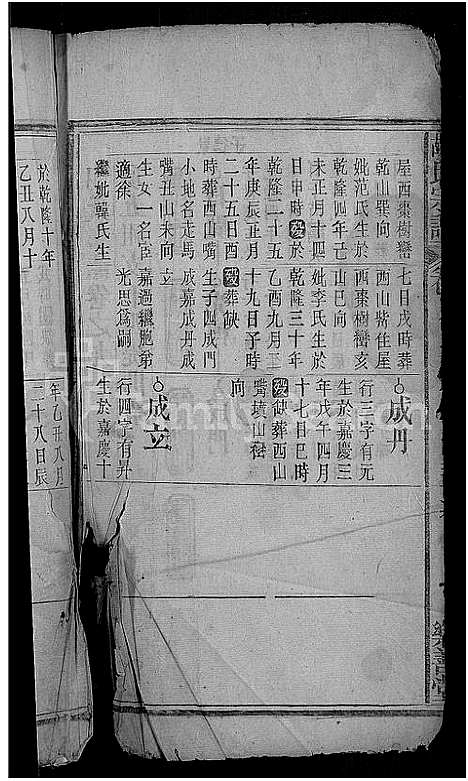 屋西棗樹巒
乾山巽向
妣范氏生於
乾隆四年己
未正月十四
日申時歿於
乾隆二十五
年庚辰正月
二十五日酉
時葬西山嘴
小地名走馬
嘴丑山未向
生女一名宦
適徐
繼妣韓氏生
七日戌時葬
西山嘴住屋
西棗樹巒亥
山巳向
妣李氏生於
乾隆三十年
乙酉九月二
十九日子時
歿葬缺
生子四成門
成嘉成丹成
立
嘉過繼胞弟
光思為嗣
成丹
行三字有元
生於嘉慶三
年戊午四月
十七日巳時
歿缺葬西山
嘴墳山
向
成立
行四字有昇
生於嘉慶十
樂善堂
於乾隆十年
乙丑八月十
年乙丑八月
二十八日辰